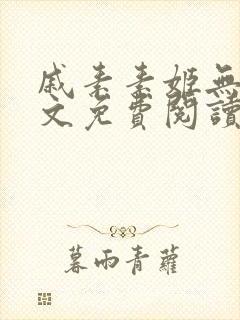 戚素素姬無
文免費閱讀
暮雨青蘿